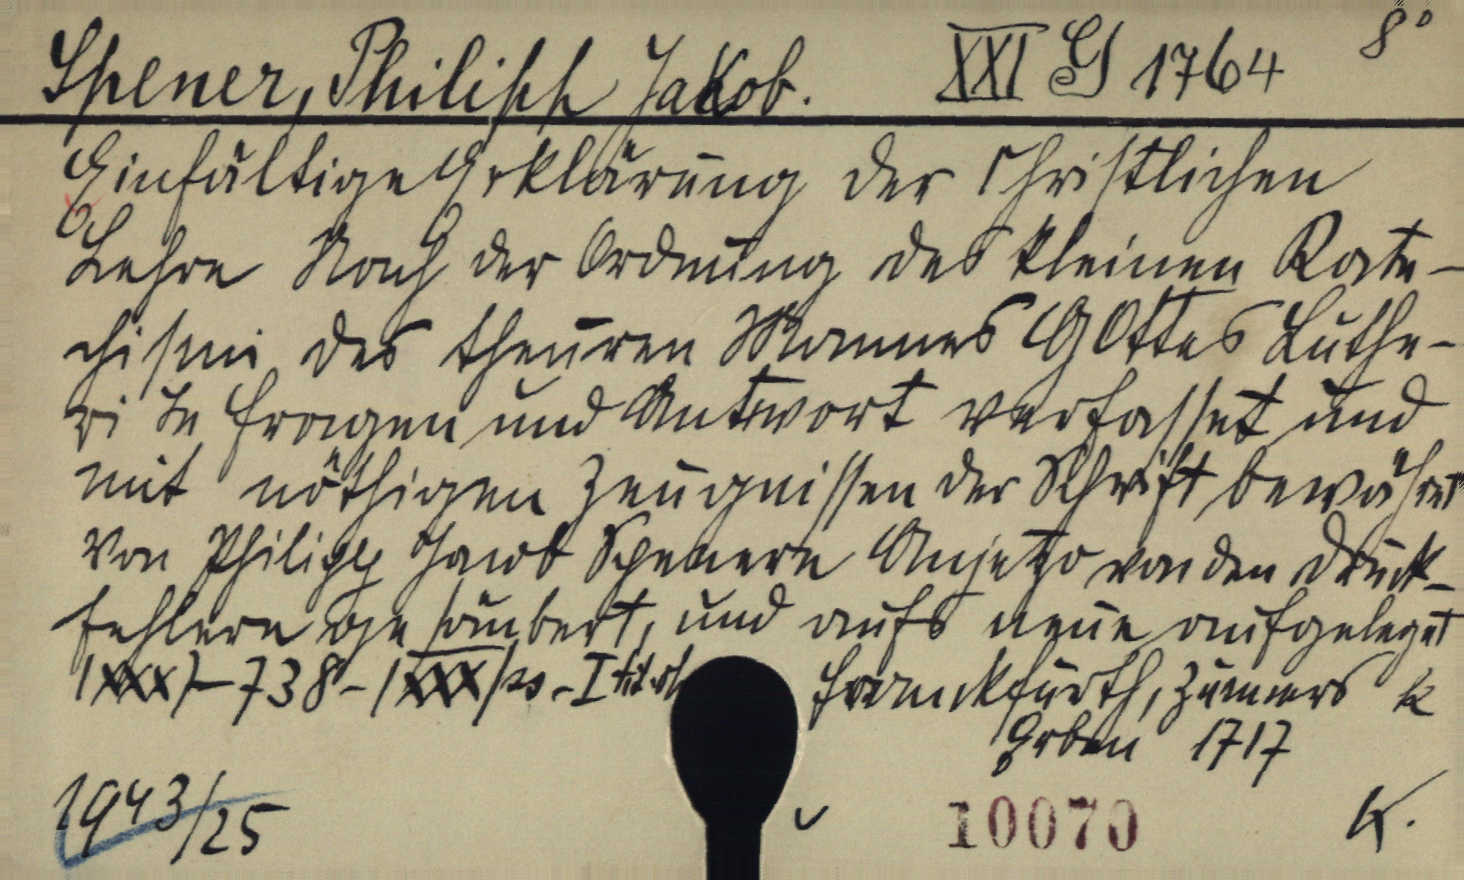 Spener, Philipp Jakob. XXI G 1764 8°
Einfältige Erklärung der Christlichen
Lehre Nach der Ordnung des kleinen Kate-
chismi des theuren Mannes GOttes Luthe-
ri In Fragen und Antwort verfasset und
mit nöthigen Zeugnissen der Schrift bewähret
Von Philipp Jacob Spenern Anjetzo von den Druck-
fehlern gesäubert, und aufs neue aufgeleget
(XXX)-738-(XXX)
Franckfurth, Zunners
Erben 1717
1943/25
10070
K.